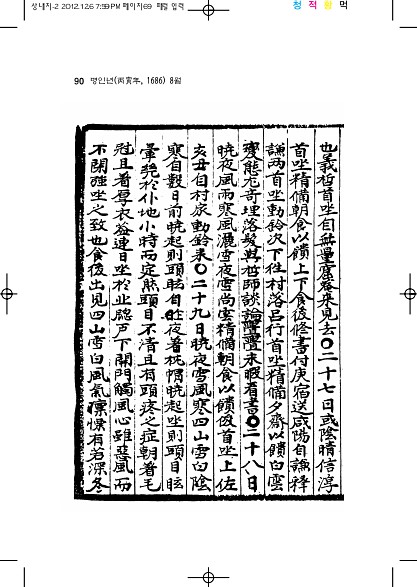 상세지-2 2012.12.6 7:59 PM 페이지69 패럴 입력
청 적 황 먹
90 병인년(丙寅年, 1686) 8월
也義哲首坐自無量窟發來見去〇二十七日或陰晴信淳
首坐精備朝食以饋上下食後修書付庚宿送咸陽自謙釋
謙两首坐動鈴次下往村落呂行首坐精備夕齋以饋白雲
變態尤奇埋落髮與哲師談論亹亹未暇看書〇二十八日
暁夜風雨寒風灑雪夜雪尚雲精備朝食以饋俊首坐上佐
亥丑自村家動鈴来〇二十九日暁夜雪風寒四山雪白陰
寒自數日前暁起則頭眩自昨夜着枕帽暁起坐則頭目眩
暈挽於小地小時両定然頭目不清且有頭疼之症朝着毛
冠且着厚衣答連日坐於止認戸下開門觸風心雖惡風而
不関強坐之致也食後出見四山雪白風氣凛慄有若深冬